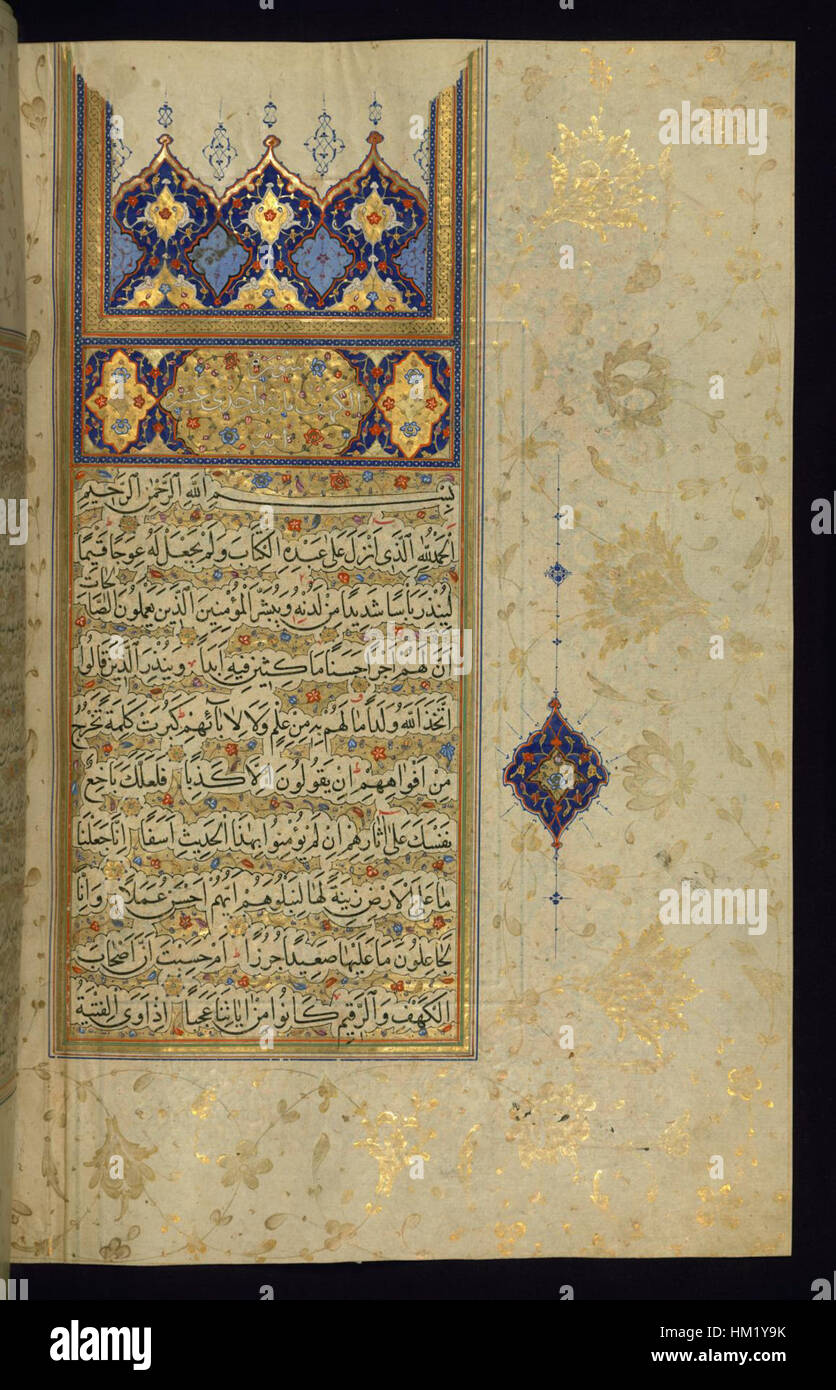 بِسْمِ اللهِ الرَّحْمٰنِ الرَّحِيمِ
اَلْحَمْدُ لِلّٰهِ الَّذِى اَنْزَلَ عَلٰى عَبْدِهِ الْكِتَابَ وَلَمْ يَجْعَلْ لَهُ عِوَجًا قَيِّمًا
لِيُنْذِرَ بَأْسًا شَدِيدًا مِنْ لَدُنْهُ وَيُبَشِّرَ الْمُؤْمِنِينَ الَّذِينَ يَعْمَلُونَ الصَّالِحَاتِ
اَنَّ لَهُمْ اَجْرًا حَسَنًا مَاكِثِينَ فِيهِ اَبَدًا وَيُنْذِرَ الَّذِينَ قَالُوا
اتَّخَذَ اللهُ وَلَدًا مَا لَهُمْ بِهِ مِنْ عِلْمٍ وَلَا لِاٰبَائِهِمْ كَبُرَتْ كَلِمَةً تَخْرُجُ
مِنْ اَفْوَاهِهِمْ اِنْ يَقُولُونَ اِلَّا كَذِبًا فَلَعَلَّكَ بَاخِعٌ
نَفْسَكَ عَلٰى اٰثَارِهِمْ اِنْ لَمْ يُؤْمِنُوا بِهٰذَا الْحَدِيثِ اَسَفًا اِنَّا جَعَلْنَا
مَا عَلَى الْاَرْضِ زِينَةً لَهَا لِنَبْلُوَهُمْ اَيُّهُمْ اَحْسَنُ عَمَلًا وَاِنَّا
لَجَاعِلُونَ مَا عَلَيْهَا صَعِيدًا جُرُزًا اَمْ حَسِبْتَ اَنَّ اَصْحَابَ
الْكَهْفِ وَالرَّقِيمِ كَانُوا مِنْ اٰيَاتِنَا عَجَبًا اِذْ اَوَى الْفِتْيَةُ
alamy
alamy
Image ID: HM1Y9K
www.alamy.com